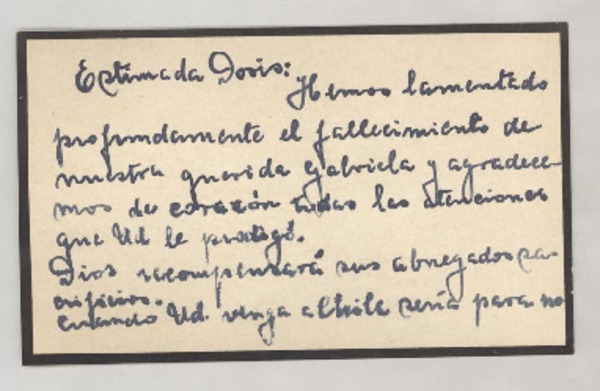 Estimada Doris:
Hemos lamentado
profundamente el fallecimiento de
nuestra querida Gabriela y agradece-
mos de corazón todas las atenciones
que Ud le prodigó.
Dios recompensará sus abnegados sa-
crificios.
Cuando Ud. venga a Chile sería para no